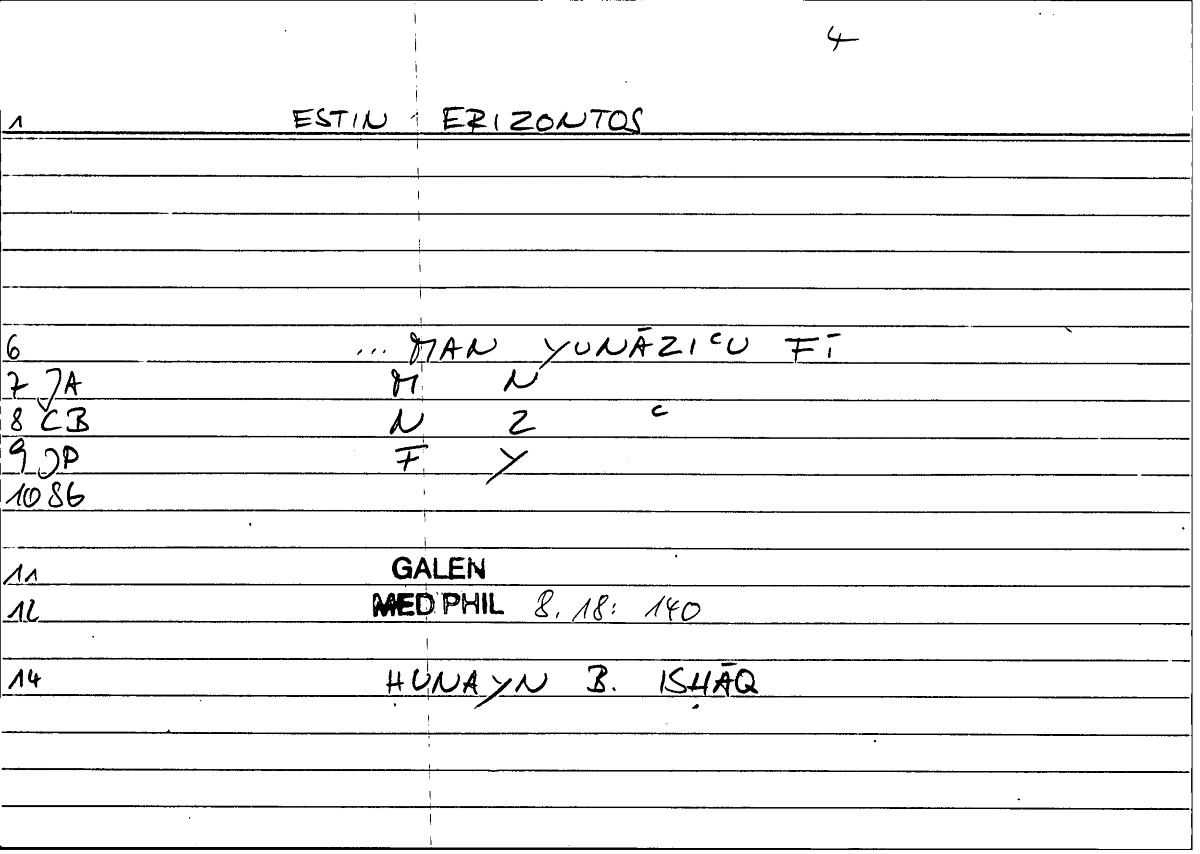 4
1 ESTIN ERIZONTOS
6 ... MAN YUNĀZIʿU FĪ
7 JA M N
8 CB N Z ʿ
9 JP F Y
10 86
11 GALEN
12 MED PHIL 8. 18: 140
14 ḤUNAYN B. ISḤĀQ